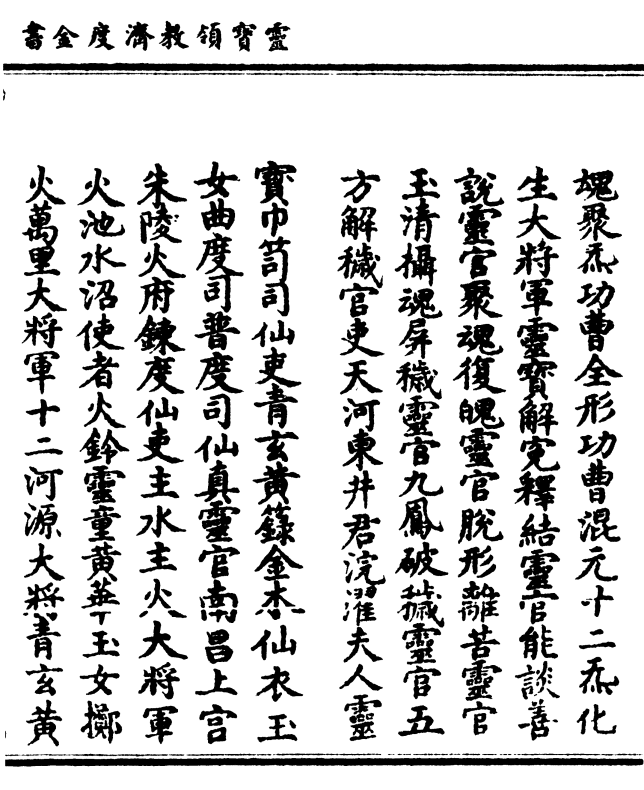 靈寶領教濟度金書
魂聚炁功曹全形功曹混元十二炁化
生大將軍靈寶解寃釋結靈官能談善
說靈官聚魂復魄靈官脫形離苦靈官
玉清攝魂屏穢靈官九鳳破穢靈官五
方解穢官吏天河東井君浣濯夫人靈
寶巾笥司仙吏青玄黄籙金仙衣玉
女曲度司普度司仙真靈官南昌上宮
朱陵火府鍊度仙吏主水主火大將軍
火池水沼使者火鈴靈童黄華玉女擲
火萬里大將軍十二河源大將青玄黄